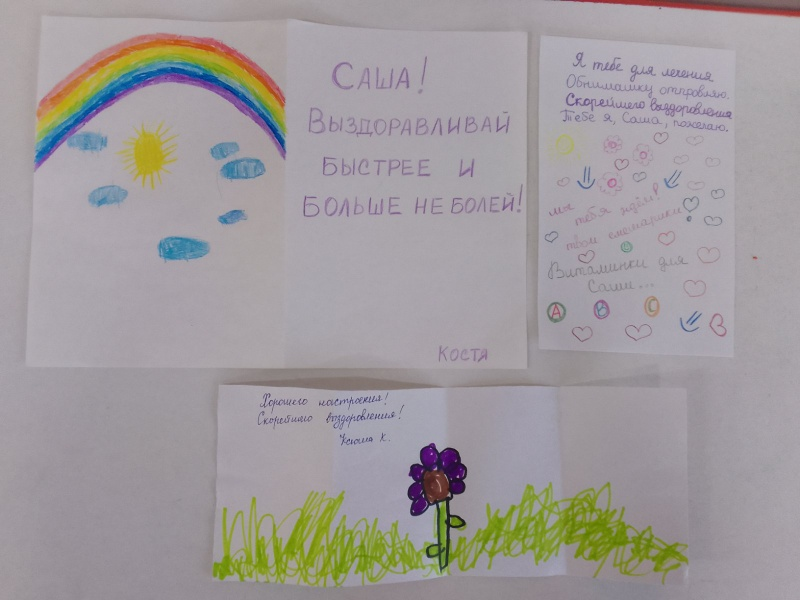 САША!
ВЫЗДОРАВЛИВАЙ
БЫСТРЕЕ И
БОЛЬШЕ НЕ БОЛЕЙ!
КОСТЯ
Я тебе для лечения
Обнимашку отправляю.
Скорейшего выздоровления
Тебе я, Саша, пожелаю.
мы тебя ждём!
твои
Витаминки для
Саши...
А
В
С
Хорошего настроения!
выздоровления!
К.